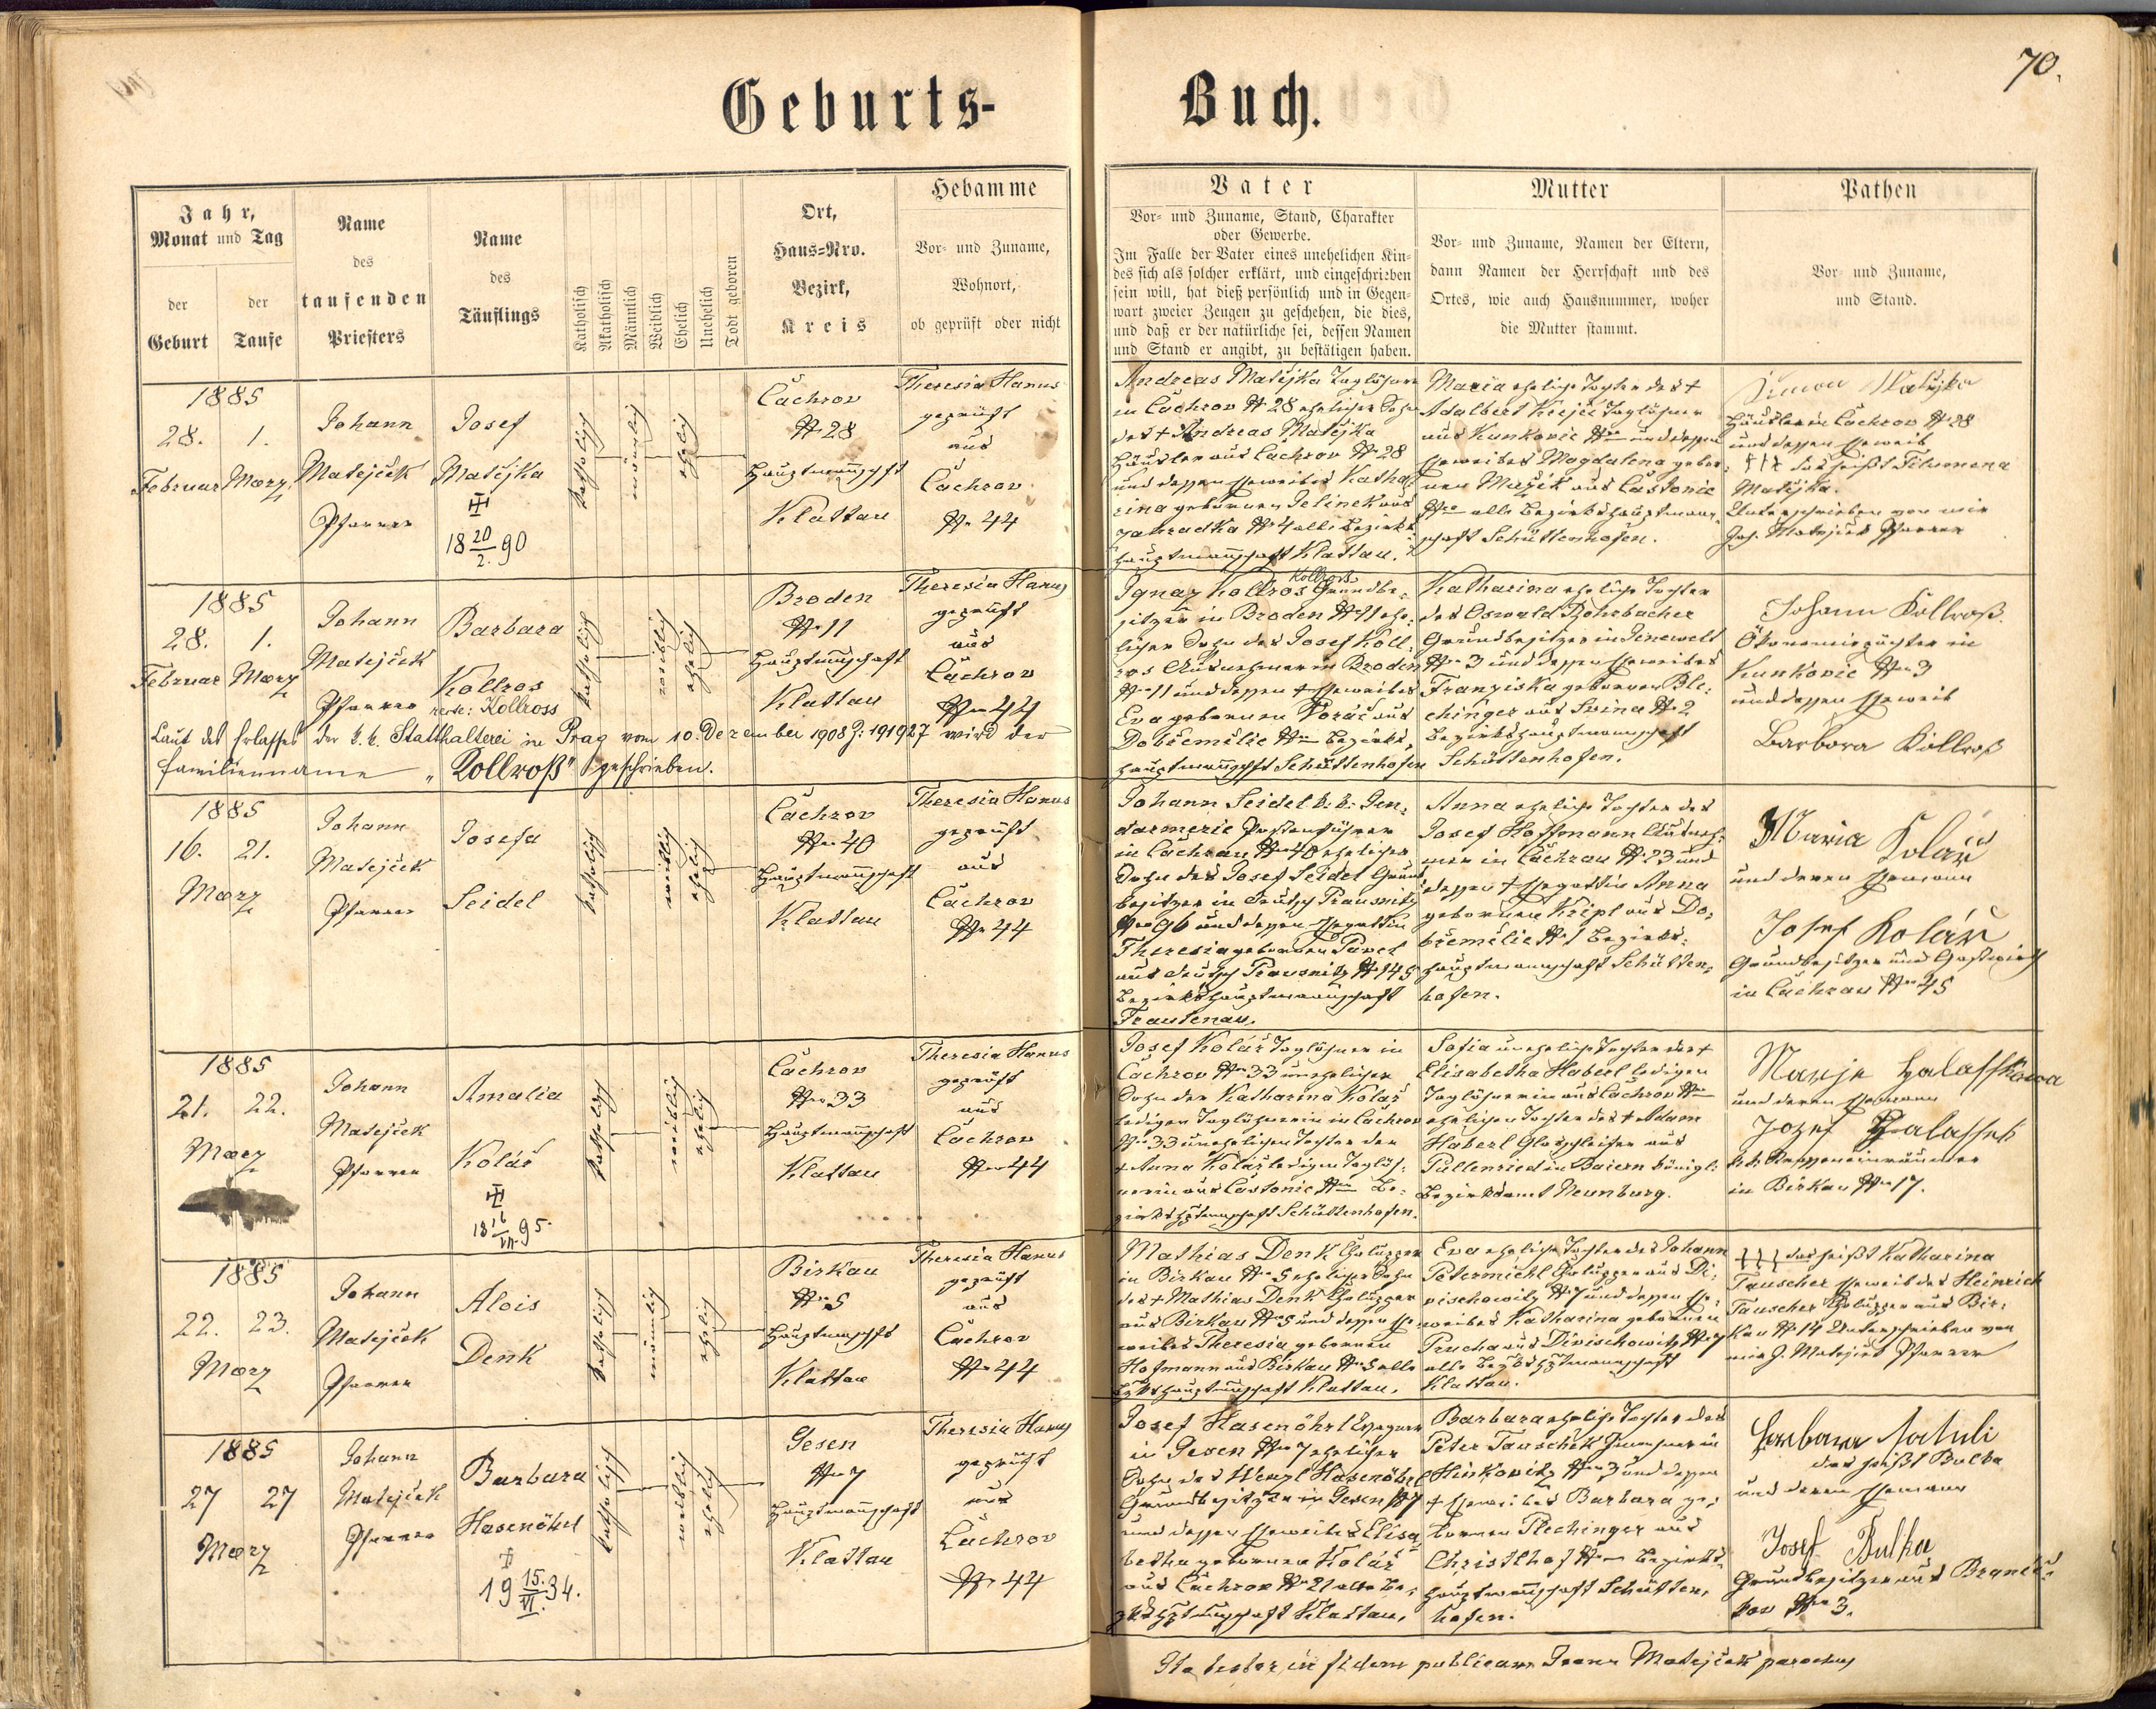 70.
Geburts-
Buch.
Jahr,
Monat und Tag
der
Geburt
der
Taufe
Name
des
taufenden
Priesters
Name
des
Täuflings
Katholisch
Akatholisch
Männlich
Weiblich
Ehelich
Unehelich
Todt geboren
Ort,
Haus-Nro.
Bezirk,
Kreis
Hebamme
Vor- und Zuname,
Wohnort,
ob geprüft oder nicht
Vater
Vor- und Zuname, Stand, Charakter
oder Gewerbe.
Im Falle der Vater eines unehelichen Kin-
des sich als solcher erklärt, und eingeschrieben
sein will, hat dieß persönlich und in Gegen-
wart zweier Zeugen zu geschehen, die dies,
und daß er der natürliche sei, dessen Namen
und Stand er angibt, zu bestätigen haben.
Mutter
Vor- und Zuname, Namen der Eltern,
dann Namen der Herrschaft und des
Ortes, wie auch Hausnummer, woher
die Mutter stammt.
Pathen
Vor- und Zuname,
und Stand.
1885
28. 1.
Februar März
Johann
Matejček
Pfarrer
Josef
Matějka
18 20/2. 90
katholisch
männlich
ehelich
Čachrov
N 28
Hauptmannschaft
Klattau
Theresia Hanus
geprüft
aus
Čachrov
N 44
Andreas Matějka Taglöhner
in Čachrov N 28 ehelicher Sohn
des + Andreas Matějka
Häusler aus Čachrov N 28
und dessen Eheweibes Katha-
rina gebornen Jelinek aus
Zahradka N 4 alle Bezirks-
hauptmannschaft Klattau.
Maria eheliche Tochter des +
Adalbert Krejčí Taglöhner
aus Kunkovic und dessen
Eheweibes Magdalena gebor-
nen Mažík aus Častonic
alle Bezirkshauptmann-
schaft Schüttenhofen.
Simon Matějka
Häusler in Čachrov N 28
und dessen Eheweib
+++ das heißt Filomena
Matějka.
Unterschrieben von mir
Joh. Matejček Pfarrer
1885
28. 1.
Februar März
Johann
Matejček
Pfarrer
Barbara
Kollros
recte: Kollross
katholisch
weiblich
ehelich
Broden
N 11
Hauptmannschaft
Klattau
Theresia Hanus
geprüft
aus
Čachrov
N 44
Laut des Erlasses der k. k. Statthalterei in Prag vom 10. Dezember 1908 Z: 191927 wird der
Familienname „Kollroß“ geschrieben.
Kollross
Ignaz Kollros Grundbe-
sitzer in Broden N 11 ehe-
licher Sohn des Josef Koll-
ros Ausnehmer in Broden
N 11 und dessen + Eheweibes
Eva gebornen Voráč aus
Dobřemělic Bezirks-
hauptmannschft Schüttenhofen
Katharina eheliche Tochter
des Oswald Rohrbacher
Grundbesitzer in Jenewelt
N 3 und dessen Eheweibes
Franziska gebornen Ble-
chinger aus Svina N 2
Bezirkshauptmannschaft
Schüttenhofen.
Johann Kollroß.
Ökonomiepächter in
Kunkovic N 3
und dessen Eheweib
Barbora Kollroß
1885
16. 21.
März
Johann
Matejček
Pfarrer
Josefa
Seidel
katholisch
weiblich
ehelich
Čachrov
N 40
Hauptmannschaft
Klattau
Theresia Hanus
geprüft
aus
Čachrov
N 44
Johann Seidel k. k. Gen-
darmerie Postenführer
in Čachrau N 40 ehelicher
Sohn des Josef Seidel Grund-
besitzer in Deutsch Prausnitz
N 96 und dessen Ehegattin
Theresia gebornen Pavel
aus Deutsch Prausnitz N 145
Bezirkshauptmannschaft
Trautenau.
Anna eheliche Tochter des
Josef Hoffmann Ausneh-
mer in Čachrau N 23 und
dessen + Ehegattin Anna
gebornen Kripl aus Do-
břemělic N 1 Bezirks-
hauptmannschaft Schütten-
hofen.
Maria Kolař
und deren Ehemann
Josef Kolář
Grundbesitzer und Gastwirth
in Čachrau N 45
1885
21. 22.
März
Johann
Matejček
Pfarrer
Amalia
Kolář
18 16/VII. 95.
katholisch
weiblich
ehelich
Čachrov
N 33
Hauptmannschaft
Klattau
Theresia Hanus
geprüft
aus
Čachrov
N 44
Josef Kolář Taglöhner in
Čachrov N 33 unehelicher
Sohn der Katharina Kolář
ledigen Taglöhnerin in Čachrov
N 33 unehelichen Tochter der
+ Anna Kolář ledigen Taglöh-
nerin aus Častonic Be-
zirkshptmannschaft Schüttenhofen.
Sofia uneheliche Tochter der +
Elisabetha Haberl ledigen
Taglöhnerin aus Čachrov
ehelichen Tochter des + Adam
Haberl Glasschleifer aus
Pullenried in Baiern königl.
Bezirksamt Neunburg.
Marje Halaffkowa
und deren Ehemann
Jozef Halaffek
k. k. Strasseneinräumer
in Birkau N 17.
1885
22. 23.
März
Johann
Matejček
Pfarrer
Alois
Denk
katholisch
männlich
ehelich
Birkau
N 5
Hauptmannschft
Klattau
Theresia Hanus
geprüft
aus
Čachrov
N 44
Mathias Denk Chalupper
in Birkau N 5 ehelicher Sohn
des + Mathias Denk Chalupper
aus Birkau N 5 und dessen Ehe-
weibes Theresia gebornen
Hofmann aus Birkau N 5 alle
Bzkshauptmannschaft Klattau.
Eva eheliche Tochter des Johann
Petermichl Chalupper aus Di-
vischowitz N 7 und dessen Ehe-
weibes Katharina gebornen
Prucha aus Divischowitz N 7
alle Bezkshptmannschaft
Klattau.
+++ das heißt Katharina
Tauscher Eheweib des Heinrich
Tauscher Chalupper aus Bir-
kau N 14 Unterschrieben von
mir J. Matejček Pfarrer
1885
27 27
März
Johann
Matejček
Pfarrer
Barbara
Hasenöhrl
19 15./VI. 34.
katholisch
weiblich
ehelich
Gesen
N 7
Hauptmannschaft
Klattau
Theresia Hanus
geprüft
aus
Čachrov
N 44
Josef Hasenöhrl
in Gesen N 7 ehelicher
Sohn des Wenzl Hasenöhrl
Grundbesitzer in Gesen N 7
und dessen Eheweibes Elisa-
betha gebornen Kolář
aus Čachrov N 21 alle Be-
zkshptmannschaft Klattau.
Barbara eheliche Tochter des
Peter Tauschek Inwohner in
Hinkovitz N 3 und dessen
+ Eheweibes Barbara ge-
bornen Plechinger aus
Christlhof Bezirks-
hauptmannschaft Schütten-
hofen.
Barbara
das heißt Bulka
und deren Ehemann
Josef Bulka
Grundbesitzer aus Branič-
kov N 3.
Ita testor in fidem publicam Joann Matejček parochus